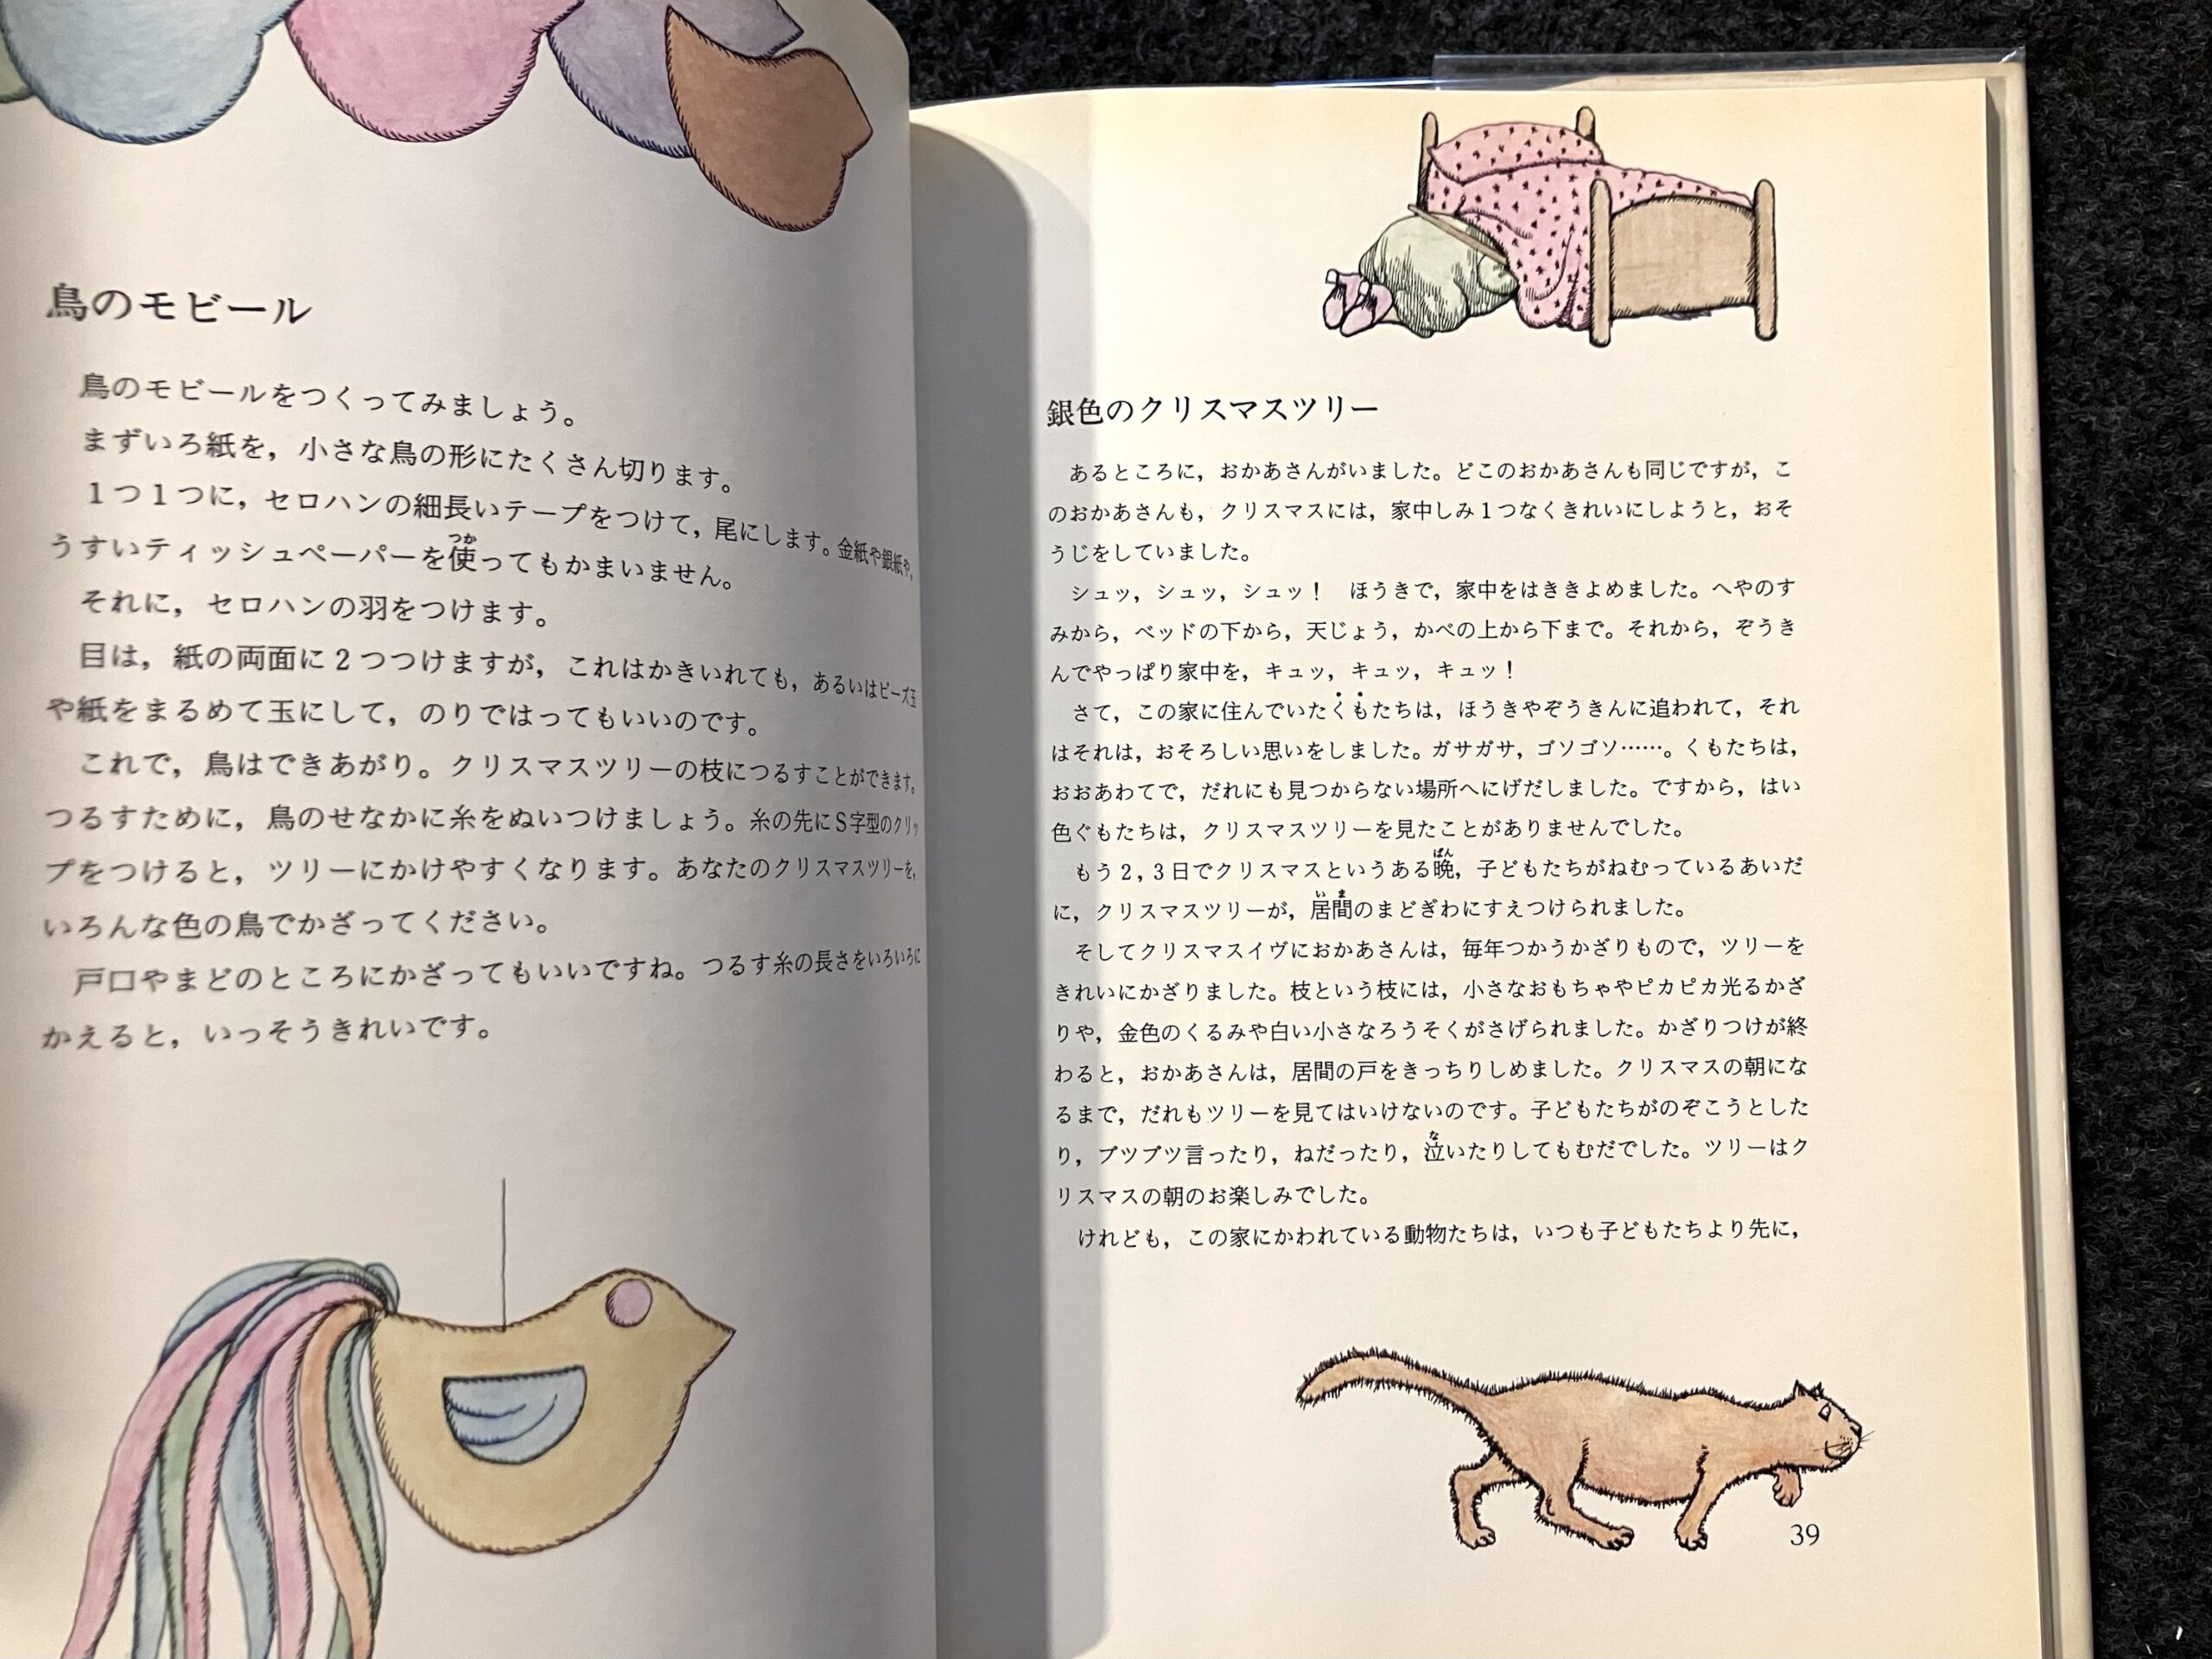 鳥のモビール
鳥のモビールをつくってみましょう。
まずいろ紙を，小さな鳥の形にたくさん切ります。
１つ１つに，セロハンの細長いテープをつけて，尾にします。金紙や銀紙や，
うすいティッシュペーパーを使ってもかまいません。
それに，セロハンの羽をつけます。
目は，紙の両面に２つつけますが，これはかきいれても，あるいはビーズ玉
や紙をまるめて玉にして，のりではってもいいのです。
これで，鳥はできあがり。クリスマスツリーの枝につるすことができます。
つるすために，鳥のせなかに糸をぬいつけましょう。糸の先にＳ字型のクリッ
プをつけると，ツリーにかけやすくなります。あなたのクリスマスツリーを，
いろんな色の鳥でかざってください。
戸口やまどのところにかざってもいいですね。つるす糸の長さをいろいろに
かえると，いっそうきれいです。
銀色のクリスマスツリー
あるところに，おかあさんがいました。どこのおかあさんも同じですが，こ
のおかあさんも，クリスマスには，家中しみ１つなくきれいにしようと，おそ
うじをしていました。
シュッ，シュッ，シュッ！　ほうきで，家中をはききよめました。へやのす
みから，ベッドの下から，天じょう，かべの上から下まで。それから，ぞうき
んでやっぱり家中を，キュッ，キュッ，キュッ！
さて，この家に住んでいたくもたちは，ほうきやぞうきんに追われて，それ
はそれは，おそろしい思いをしました。ガサガサ，ゴソゴソ……。くもたちは，
おおあわてで，だれにも見つからない場所へにげだしました。ですから，はい
色ぐもたちは，クリスマスツリーを見たことがありませんでした。
もう２，３日でクリスマスというある晩，子どもたちがねむっているあいだ
に，クリスマスツリーが，居間のまどぎわにすえつけられました。
そしてクリスマスイヴにおかあさんは，毎年つかうかざりもので，ツリーを
きれいにかざりました。枝という枝には，小さなおもちゃやピカピカ光るかざ
りや，金色のくるみや白い小さなろうそくがさげられました。かざりつけが終
わると，おかあさんは，居間の戸をきっちりしめました。クリスマスの朝にな
るまで，だれもツリーを見てはいけないのです。子どもたちがのぞこうとした
り，ブツブツ言ったり，ねだったり，泣いたりしてもむだでした。ツリーはク
リスマスの朝のお楽しみでした。
けれども，この家にかわれている動物たちは，いつも子どもたちより先に，
39